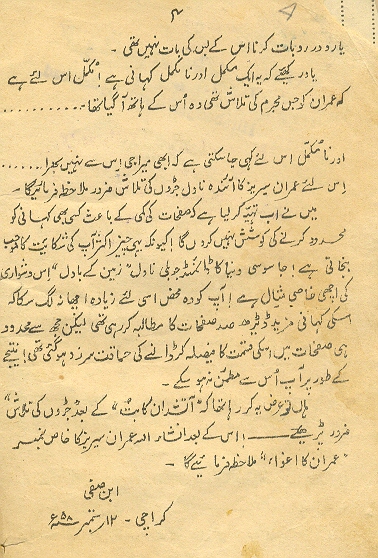 ۴
4
یا دو در دو بات کرنا اس کے بس کی بات نہیں تھی ۔
یاد رکھیے کہ یہ ایک مکمل اور نامکمل کہانی ہے ! مکمل اس لئے ہے
کہ عمران کو جس مجرم کی تلاش تھی وہ اُس کے ہاتھ آگیا تھا ۔.........
اور نامکمل اس لئے کہی جا سکتی ہے کہ ابھی میرا جی اِس سے نہیں بھرا......
اِس لئے عمران سیریز کا آئندہ ناول جڑوں کی تلاش ضرور ملاحظہ فرمائیے گا ۔
میں نے اب تہیہ کر لیا ہے کہ صفحات کی کمی کے باعث کسی بھی کہانی کو
محدود کرنے کی کوشش نہیں کروں گا ! کیونکہ یہی چیز اکثر آپ کی شکایت کا موجب
بنجاتی ہے ! جاسوسی دنیا کا ڈائمنڈ جوبلی ناول " زمین کے بادل " اس دشواری
کی اچھی خاصی مثال ہے ! آپ کو وہ محض اسی لئے زیادہ اچھا نہ لگ سکا کہ
اسکی کہانی مزید ڈیڑھ صد صفحات کا مطالبہ کر رہی تھی لیکن مجھ سے محدود
ہی صفحات میں اسکی قسمت کا فیصلہ کر ڈالنے کی حماقت سرزد ہو گئی تھی ! نتیجے
کے طور پر آپ اُس سے مطمئن نہ ہو سکے ۔
ہاں تو عرض یہ کر رہا تھا کہ " آتشدان کا بُت " کے بعد " جڑوں کی تلاش "
ضرور پڑھیے ——! اس کے بعد انشاء اللہ عمران سیریز کا خاص نمبر
" عمران کا اغواء " ملاحظہ فرمائیے گا ۔
ابن صفی
کراچی - ۱۲ ستمبر ۵۸ء